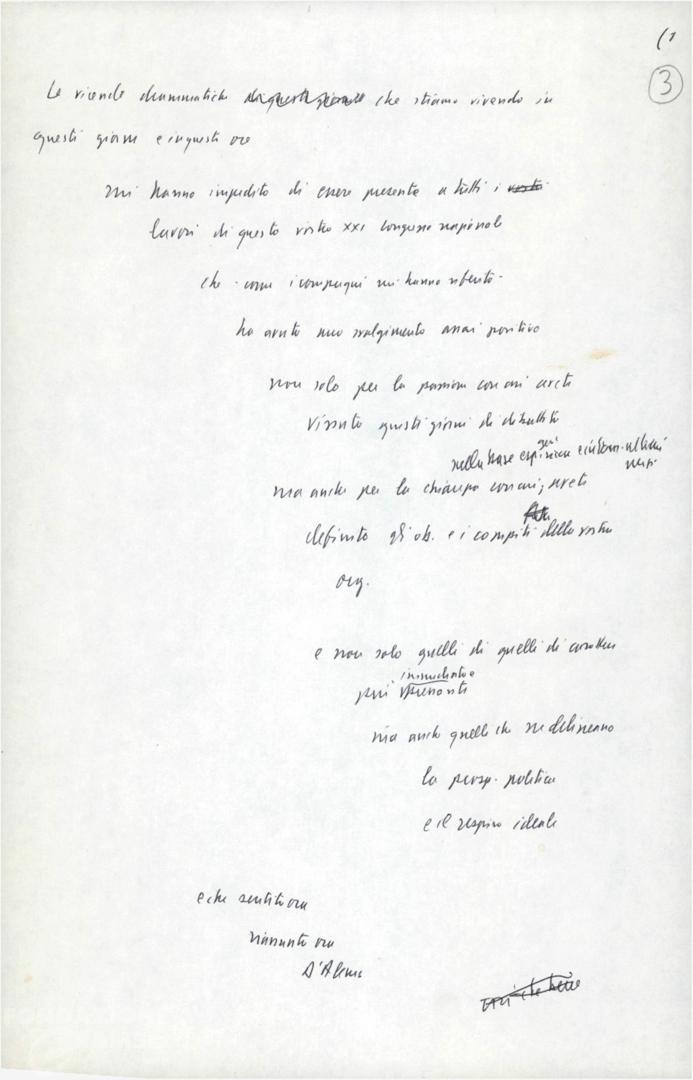 (1
3
Le vicende drammatiche di questi giorni che stiamo vivendo in
questi giorni e in queste ore
mi hanno impedito di essere presente a tutti i vostri
lavori di questo vostro XXI congresso nazionale
che - come i compagni mi hanno riferito -
ha avuto uno svolgimento assai positivo
non solo per la passione con cui avete
vissuto questi giorni di dibattito
nella base
ma anche per la chiarezza con cui avete
definito gli ob. e i compiti della vostra
org.
e non solo quelli di quelli di carattere
immediato e
più
ma anche quelli che ne delineano
la prosp. politica
e il respiro ideale
e che sentito ora
riassunte ora
D'Alema